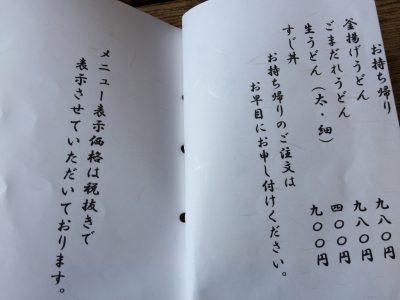 お持ち帰り
釜揚げうどん 九八〇円
ごまだれうどん 九八〇円
生うどん（太・細） 四〇〇円
すじ丼 九〇〇円
お持ち帰りのご注文は
お早目にお申し付けください。
メニュー表示価格は税抜きで
表示させていただいております。